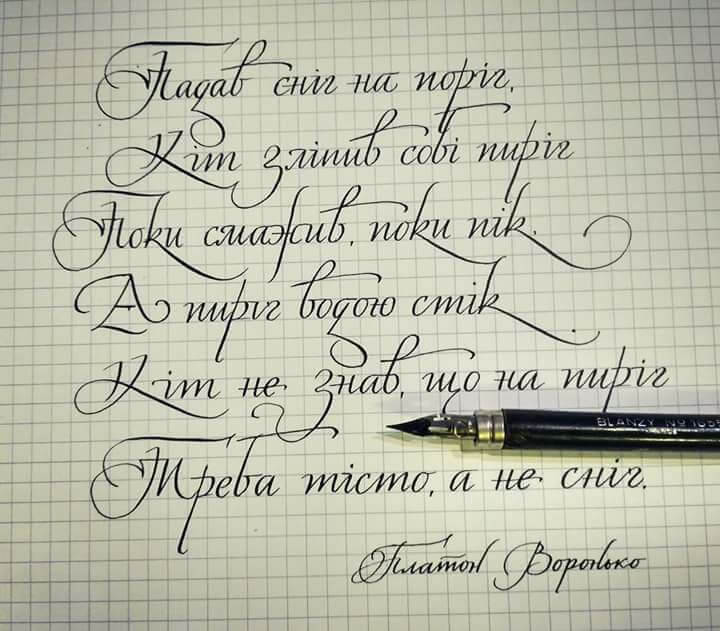 Падав сніг на поріг,
Кіт зліпив собі пиріг
Поки смажив, поки пік.
А пиріг водою стік.
Кіт не знав, що на пиріг
Треба тісто, а не сніг.
BLANZY No
Платон Воронько